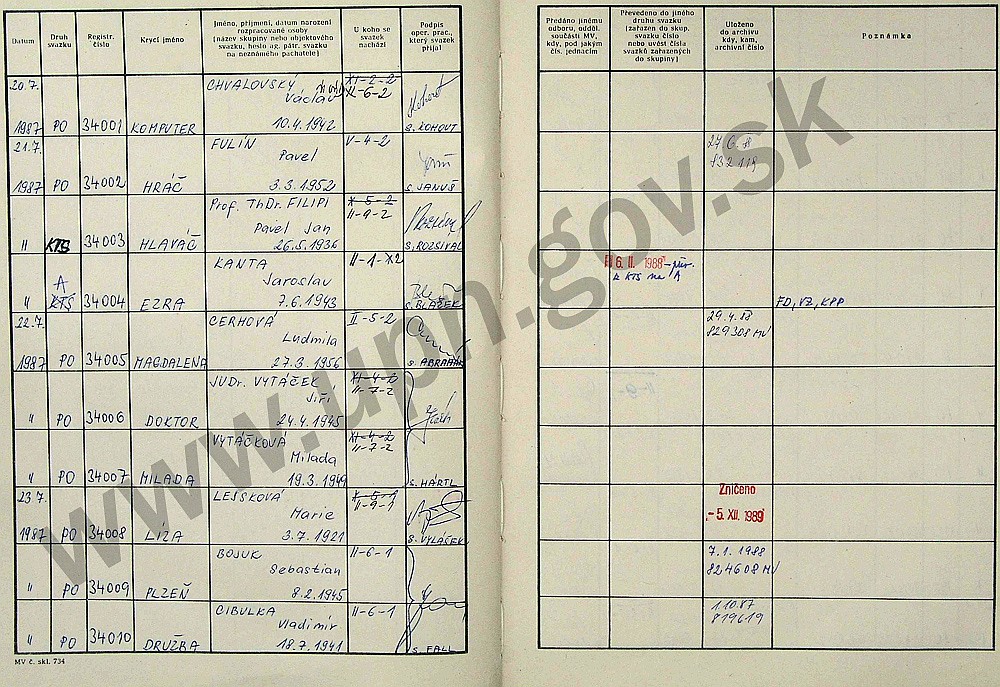 Datum
Druh svazku
Registr. číslo
Krycí jméno
Jméno, příjmení, datum narození
rozpracované osoby
(název skupiny nebo objektového
svazku, heslo ag. pátr. svazku
na neznámého pachatele)
U koho se
svazek
nachází
Podpis
oper. prac.,
který svazek
přijal
Předáno jinému
odboru, odděl.
součásti MV,
kdy, pod jakým
čís. jednacím
Převedeno do jiného
druhu svazku
(zařazen do skup.
svazku číslo
nebo uvést čísla
svazků zařazených
do skupiny)
Uloženo
do archivu
kdy, kam,
archivní číslo
Poznámka
20.7. CHVALOVSKÝ XI-2-2
Václav II-6-2
1987 PO 34001 KOMPUTER 10.4.1942 s. KOHOUT
21.7. FULÍN V-4-2
Pavel
1987 PO 34002 HRÁČ 3.3.1952 s. JANUŠ
27.6.88
832119
Prof. ThDr. FILIPI X-5-2
Pavel Jan II-9-2
" KTS 34003 HLAVÁČ 26.5.1936 s. ROZSÍVAL
KANTA II-1-X2
A Jaroslav
" KTS 34004 EZRA 7.6.1943 s. BLAŽEK
16. II. 1988 - přev.
z KTS na A
FD, VZ, KPP
22.7. CERHOVÁ II-5-2
Ludmila
1987 PO 34005 MAGDALENA 27.3.1956 s. ABRAHÁM
29.4.88
829308 MV
JUDr. VYTÁČEK XI-4-2
Jiří II-7-2
" PO 34006 DOKTOR 24.4.1945
VYTÁČKOVÁ XI-4-2
Milada II-7-2
" PO 34007 MILADA 19.3.1949 s. HÁRTL
23.7. LEJSKOVÁ X-5-1
Marie II-9-1
1987 PO 34008 LÍZA 3.7.1921 s. VYLÁČEK
Zničeno
- 5. XII. 1989
BOJUK II-6-1
Sebastian
" PO 34009 PLZEŇ 8.2.1945
7.1.1988
824608 MV
CIBULKA II-6-1
Vladimír
" PO 34010 DRUŽBA 18.7.1941 s. FALL
1.10.87
819619
MV č. skl. 734
www.upn.gov.sk